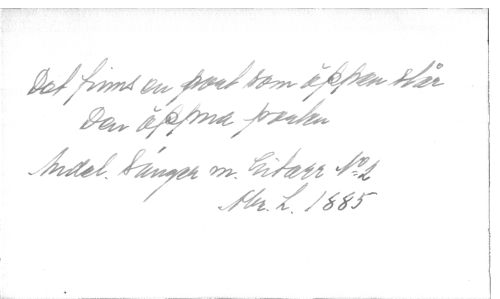 Det finns en port som öppen står
Den öppna porten
Andel. Sånger m. Gitarr Nº 2
Abr. L. 1885